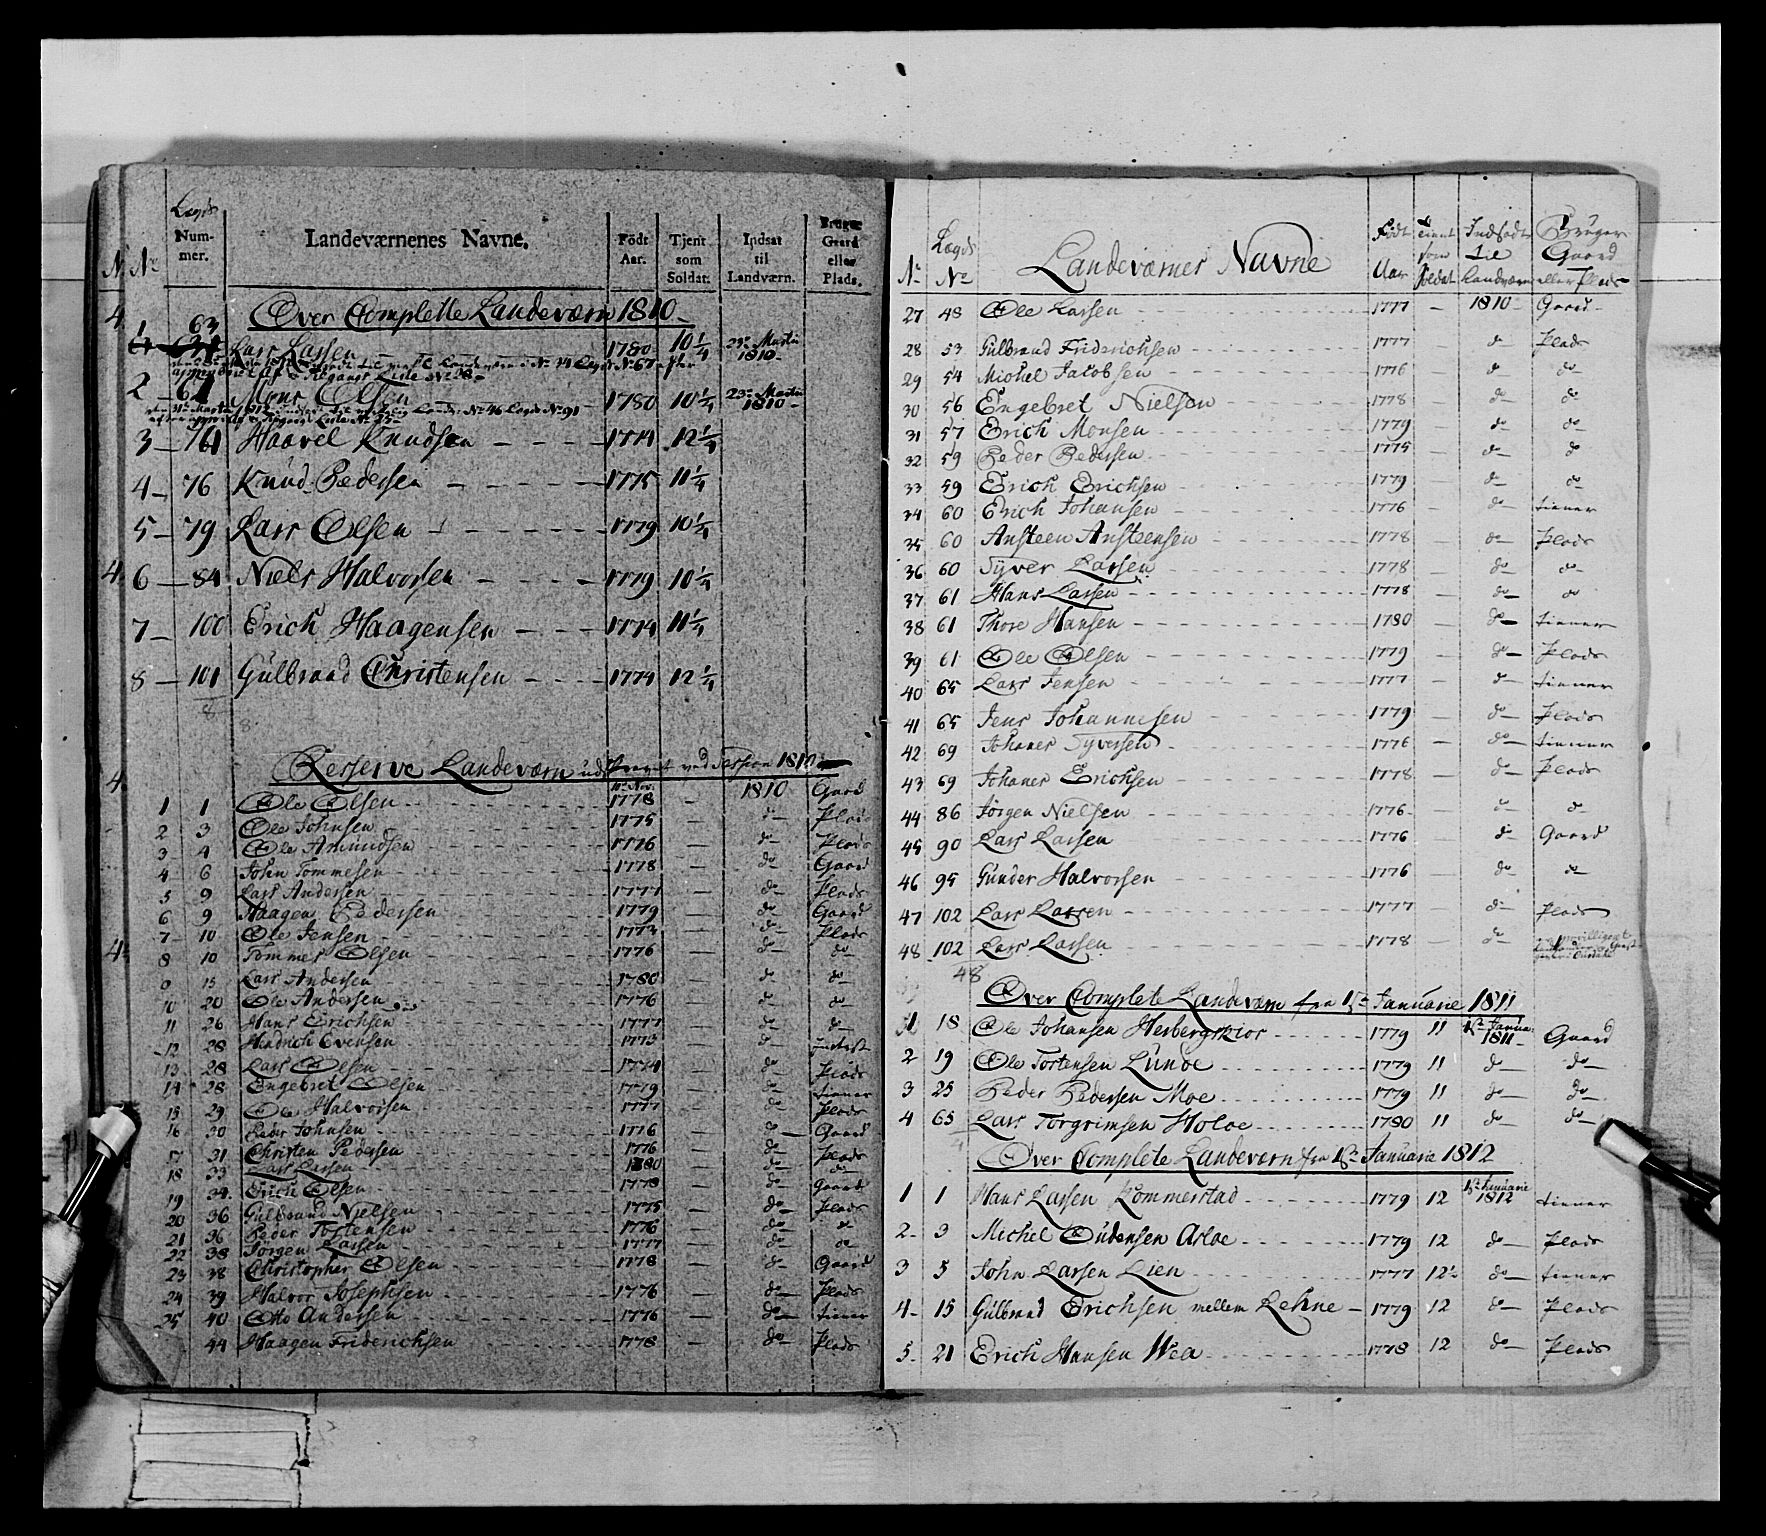 N. No. Lægds Num- mer. Landeværnenes Navne. Födt Aar. Tjent som Soldat. Indsat til Landværn. Bruger Gaard eller Plads.
4. Over Complette Landeværn 1810
1 63 Lars Larsen 1780 10 1/4 23de Martii 1810
2 64 Mons Olsen 1780 10 1/4 23de Martii 1810
3 761 Haavel Knudsen 1774 12 1/4
4 76 Knud Pedersen 1775 11 1/4
5 79 Lars Olsen 1779 10 1/4
4. 6 84 Niels Halvorsen 1779 10 1/4
7 100 Erich Haagensen 1774 11 1/4
8 101 Gulbrand Christensen 1774 12 1/4
8 8.
4. Reserve Landeværn udskrevet ved Session 1810
1 1 Ole Olsen 1778 — 1810 Gaard
2 3 Ole Johnsen 1775 — do Plads
3 4 Ole Amundsen 1776 — do Plads
4 6 John Tommesen 1778 — do Gaard
5 9 Lars Andersen 1777 — do Plads
6 9 Haagen Pedersen 1779 — do Gaard
7 10 Ole Jensen 1773 — do Plads
4. 8 10 Tommes Olsen 1776 — do do
9 15 Lars Andersen 1780 — do do
10 20 Ole Andersen 1776 — do do
11 26 Hans Erichsen 1777 — do do
12 28 Hindrich Evensen 1773 — do
13 28 Lars Olsen 1774 — do Plads
14 28 Engebret Olsen 1779 — do tienner
15 29 Ole Halvorsen 1777 — do Plads
16 30 Peder Johnsen 1776 — do Gaard
17 31 Christen Pedersen 1776 — do Plads
18 33 Lars Larsen 1780 — do do
19 34 Erich Olsen 1778 — do Gaard
20 36 Gulbrand Nielsen 1775 — do Plads
21 36 Peder Tostensen 1776 — do do
22 38 Jörgen Larsen 1777 — do do
23 38 Christopher Olsen 1778 — do Gaard
24 39 Halvor Josephsen 1776 — do Plads
25 40 Otto Andersen 1776 — do tienner
44 Haagen Friderichsen 1778 — do Plads
No. Lægds No. Landeværnes Navne Födt Aar tient som Soldat Indsadt til Landværn Bruger Gaard eller Plads
27 48 Ole Larsen 1777 — 1810 Gaard
28 53 Gulbrand Friderichsen 1777 — do Plads
29 54 Michel Jacobsen 1776 — do do
30 56 Engebret Nielsen 1778 — do do
31 57 Erich Monsen 1779 — do do
32 59 Peder Pedersen 1775 — do do
33 59 Erich Erichsen 1779 — do do
34 60 Erich Johansen 1776 — do tienner
35 60 Ansteen Ansteensen 1778 — do Plads
36 60 Syver Larsen 1778 — do do
37 61 Hans Larsen 1778 — do do
38 61 Thore Hansen 1780 — do tienner
39 61 Ole Olsen 1779 — do Plads
40 65 Lars Jensen 1777 — do tienner
41 65 Jens Johannesen 1779 — do Plads
42 69 Johanes Syversen 1776 — do tienner
43 69 Johanes Erichsen 1778 — do Plads
44 86 Jörgen Nielsen 1776 — do do
45 90 Lars Larsen 1776 do Gaard
46 95 Gunder Halvorsen 1776 — do do
47 102 Lars Larsen 1777 — do Plads
48 102 Lars Larsen 1778 — do
48
Over Complete Landeværn fra 1ste Januarie 1811
1 18 Ole Johansen Herbergskior 1779 11 1ste Janua. 1811 Gaard
2 19 Ole Tortensen Lunde 1779 11 do do
3 25 Peder Pedersen Moe 1779 11 do do
4 65 Lars Torgrimsen Holoe 1780 11 do do
4
Over Complete Landeværn fra 1ste Januarie 1812
1 1 Hans Larsen Kommerstad 1779 12 1ste Januarie 1812 tienner
2 3 Michel Oudensen Asloe 1779 12 do Plads
3 5 John Larsen Lien 1777 12 1/2 do tienner
4 15 Gulbrand Erichsen mellem Lehne 1779 12 do Plads
5 21 Erich Hansen Wea 1778 12 do Plads